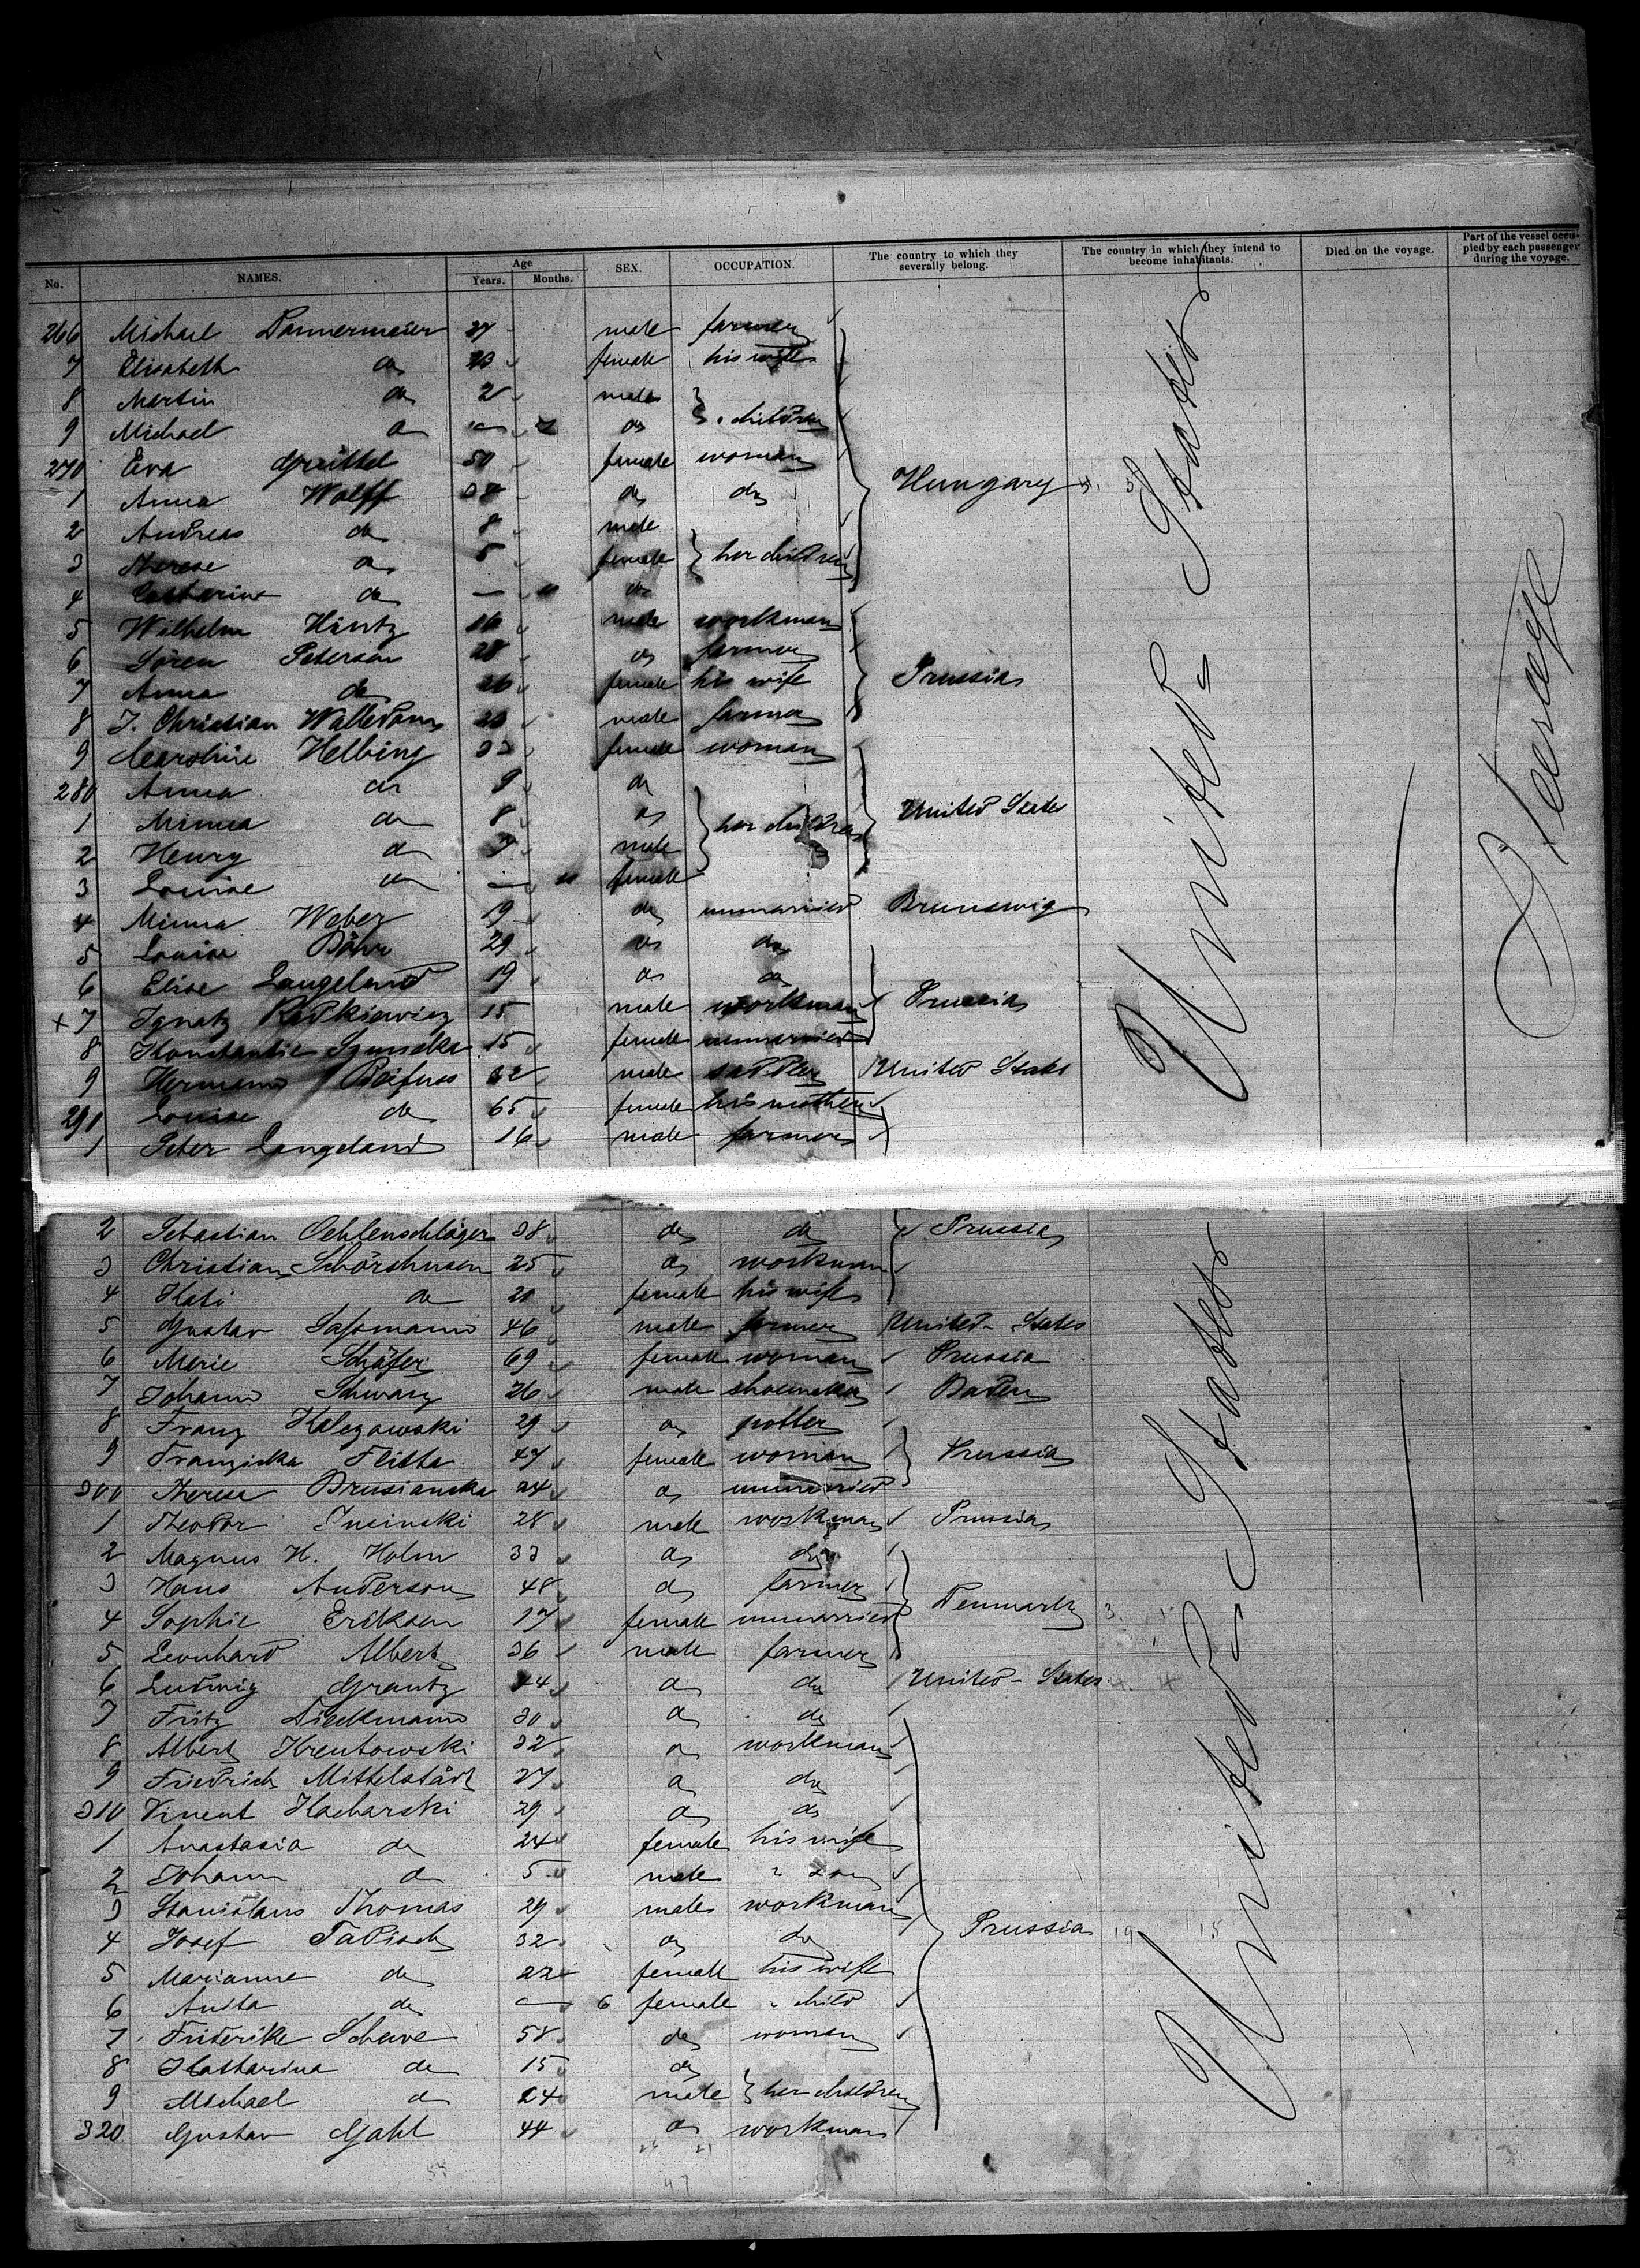 No. NAMES. Age Years. Months. SEX. OCCUPATION. The country to which they severally belong. The country in which they intend to become inhabitants. Died on the voyage. Part of the vessel occupied by each passenger during the voyage.
266 Michael Dannermeier 27 male farmer
7 Elisabeth do 23 female his wife
8 Martin do 2 male
9 Michael do — do children
270 Eva Spittel 50 female woman
1 Anna Wolff 38 do do Hungary
2 Andreas do 8 male
3 Therese do 5 female her children
4 Catharine do — 11 do
5 Wilhelm Hintz 16 male workman
6 Sören Peterson 28 do farmer
7 Anna do 26 female his wife Prussia
8 J. Christian Walledom male farmer
9 Caroline Helbing 33 female woman
280 Anna do 9 do
1 Minna do 8 do her children United States
2 Henry do 7 male
3 Louise do — 11 female
4 Minna Weber 19 do unmarried Brunswig
5 Louise Böhr 29 do do
6 Elise Langeland 19 do do
+7 Ignatz Radkiewicz 15 male workman Prussia
8 Konstantie Szumska 15 female unmarried
9 Hermann Beifuss 32 male saddler United States
290 Louise do 65 female his mother
1 Peter Langeland 16 male farmer
2 Sebastian Oehlenschläger 38 do do Prussia
3 Christian Schörshusen 25 do workman
4 Kati do 20 female his wife
5 Gustav Sassmann 46 male farmer United States
6 Marie Schäfer 69 female woman Prussia
7 Johann Schwarz 26 male shoemaker Baden
8 Franz Kalezawski 29 do potter
9 Franziska Flitta 47 female woman Prussia
300 Therese Brusianska 24 do unmarried
1 Theodor Jusinski 28 male workman Prussia
2 Magnus H. Holm 33 do do
3 Hans Anderson 48 do farmer
4 Sophie Eriksen 17 female unmarried Denmark 3. 1
5 Leonhard Albert 36 male farmer
6 Ludwig Grantz 44 do do United States
7 Fritz Dieckmann 30 do do
8 Albert Krentowski 32 do workman
9 Friedrich Mittelstädt 27 do do
310 Vincent Kacharski 29 do do
1 Anastasia do 24 female his wife
2 Johann do 5 male " son
3 Stanislaus Thomas 29 male workman
4 Josef Tadisch 32 do do Prussia 19 15
5 Marianne do 22 female his wife
6 Anita do — 6 female " child
7 Friderike Schewe 58 do woman
8 Katharina do 15 do
9 Michael do 24 male her children
320 Gustav Gahl 44 do workman
United States
United States
Steerage
55
47